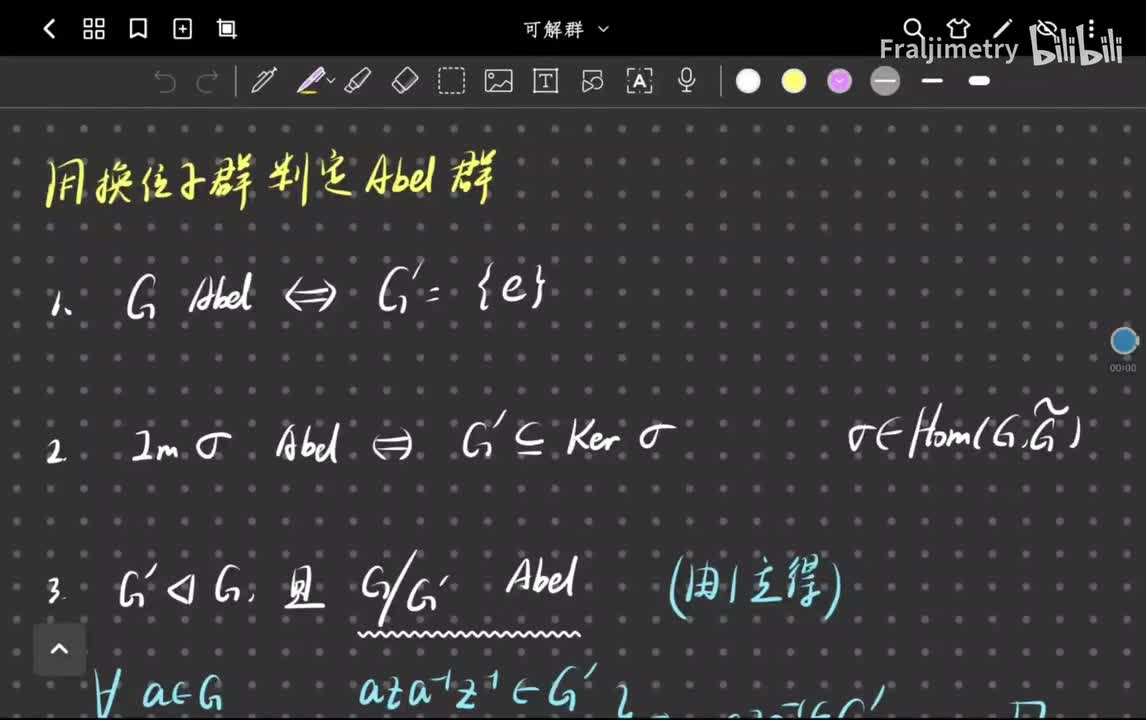 可解群
Fraljimetry bilibili
用换位子群判定Abel群
1. G Abel ⇔ G' = {e}
00:00
2. Im σ Abel ⇔ G' ⊆ Ker σ σ∈Hom(G,G̃)
3. G' ◁ G, 且 G/G' Abel (由1立得)
∀ a∈G aza⁻¹z⁻¹ ∈ G'